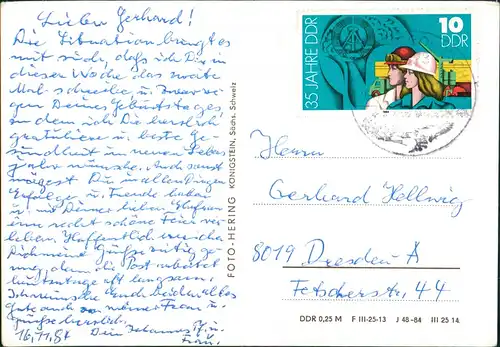 Lieber Gerhard!
Die Situation bringt es
mit sich, daß ich Dir in
dieser Woche das zweite
Mal schreibe u. zwar we-
gen Deines Geburtstages
zu dem ich Dir herzlich
gratuliere u. beste Ge-
sundheit im neuen Lebens-
jahr wünsche. Auch sonst
mögest Du in allen Dingen
Erfolge u. Freude haben
u. mit Deiner lieben Ehefrau
eine recht schöne Feier ver-
leben. Hoffentlich
Dich meine Grüße zeitig ge-
nug, denn die Post arbeitet
heutzutage oft langsam.
Ich wünsche Euch beiden alles
Gute auch von meiner Frau u.
grüße herzlich
16.11.84 Dein Johannes u.
Frau.
FOTO-HERING KÖNIGSTEIN, Sächs. Schweiz
35 JAHRE DDR
10
DDR
Herrn
Gerhard Hellwig
8019 Dresden-A
Fetscherstr. 44
DDR 0,25 M F III-25-13 J 48-84 III 25 14